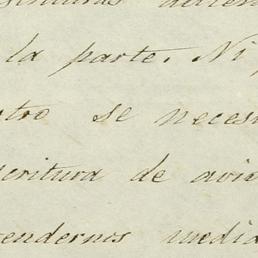 la parte. Ni
stro se neces
scritura de avi
endernos media